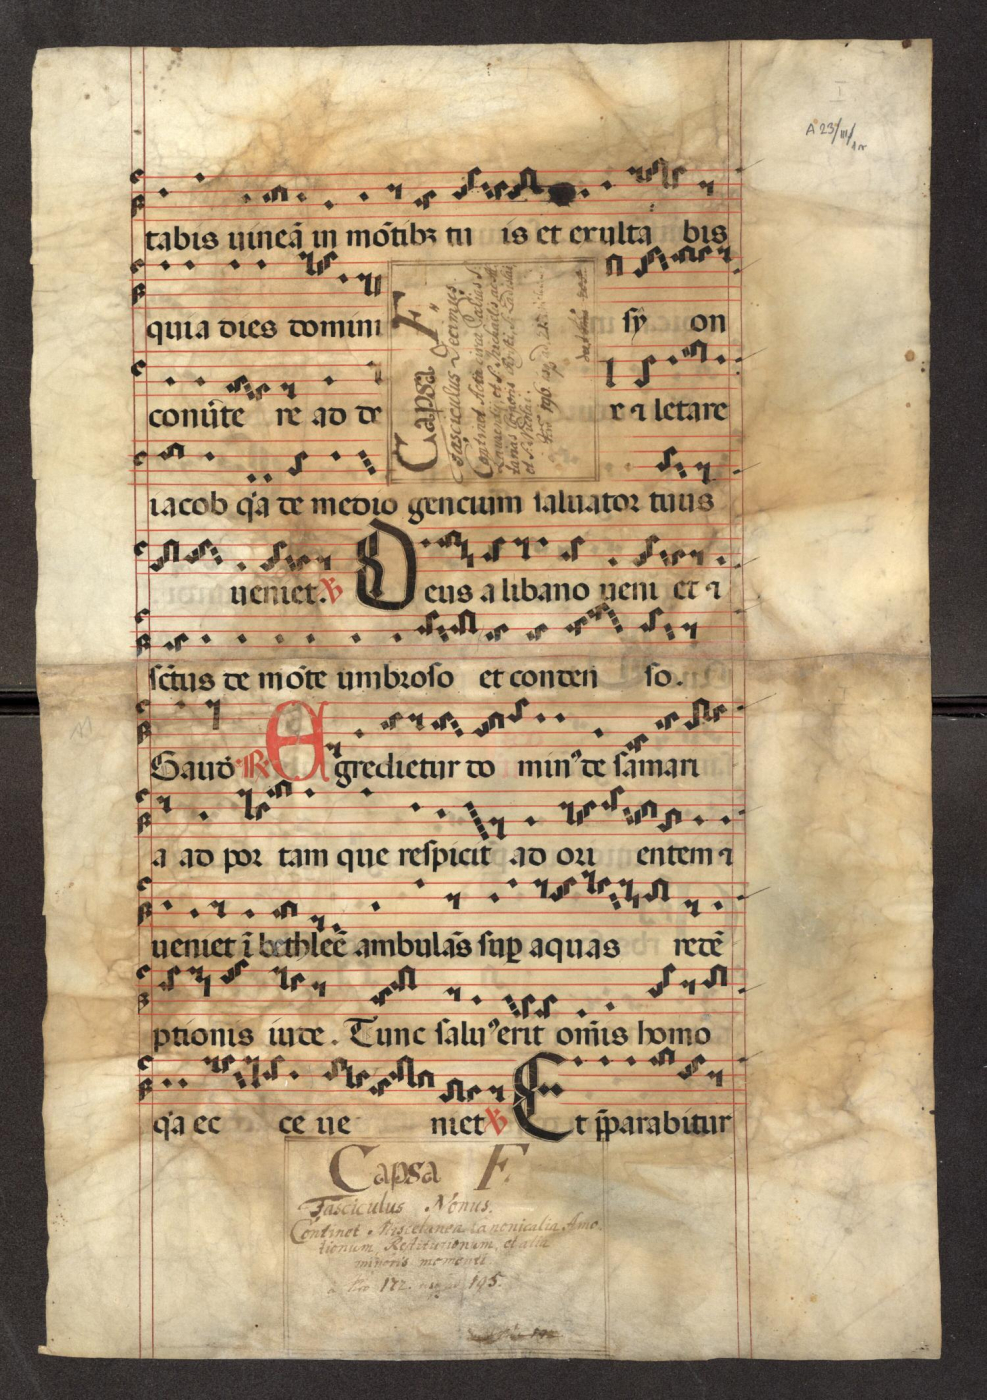 A 23/III/1r
tabis uineā in mōtibꝫ tu is et exulta bis
quia dies domini sy on
conūte re ad de r ꝛ letare
iacob q̇a de medio gencium saluator tuus
ueniet. ℣ Deus a libano ueni et ꝛ
sc̄tus de mōte umbroso et conden so.
Gaud̄ ℟ Egredietur do minꝰ de samari
a ad por tam que respicit ad ori entem ꝛ
ueniet ī bethleē ambulās suꝑ aquas redē
ptionis iude. Tunc salu᾽erit om̄is homo
q̇a ec ce ue niet ℣ Et p̄parabitur
Capsa F.
Fasciculus Decimus.
Continet
Capsa F.
Fasciculus Nonus.
Continet Miscelanea canonicalia Amo-
tionum, Restitutionum, et alia
minoris momenti
172. 195.